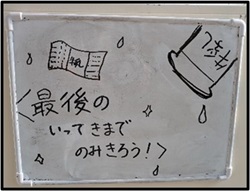 最後の
いってきまで
のみきろう!